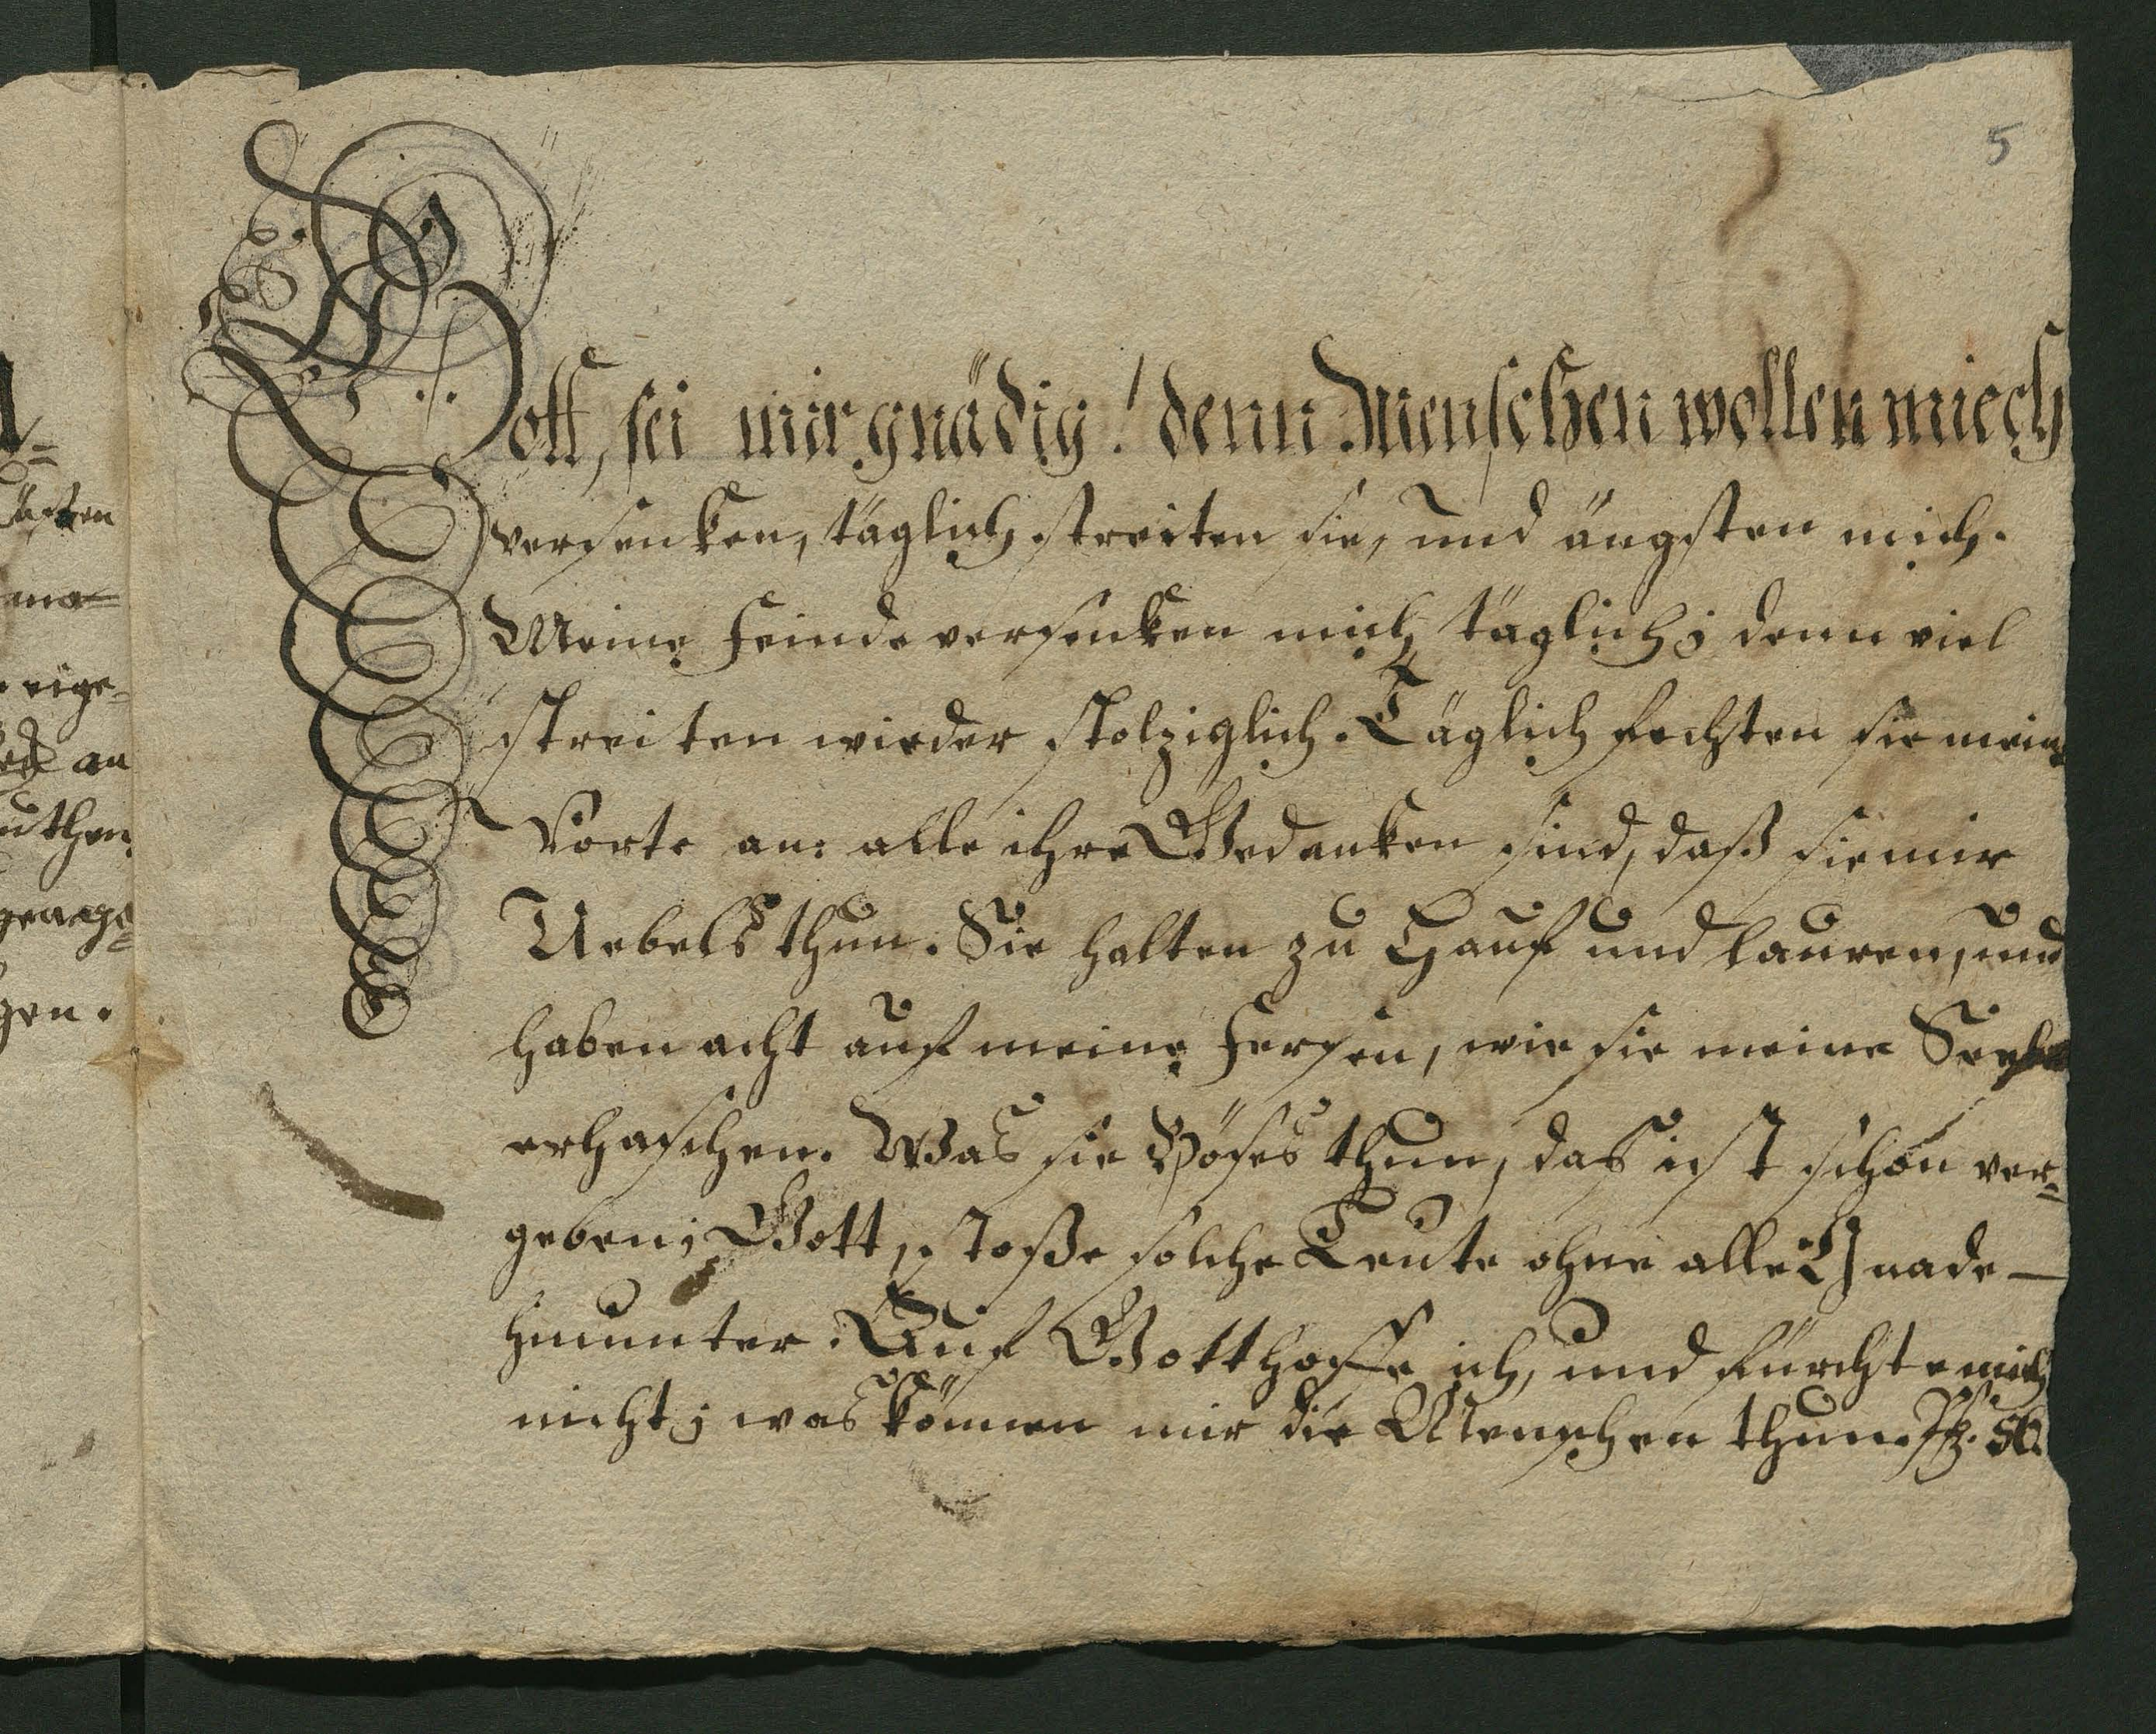 5
Gott, sei mir gnädig! denn Menschen wollen miech
versenken, täglich streiten sie, und ängsten mich.
Meine Feinde versenken mich täglich; denn viel
streiten wieder stolziglich. Täglich fechten sie meine
Worte an: alle ihre Gedanken sind, daß sie mir
Uebels thun. Sie halten zu Hauf und lauren, und
haben acht auf meine Fersen, wie sie meine Seele
erhaschen. Was sie Böses thun, das ist schon ver-
geben; Gott, stoße solche Leute ohne alle Gnade —
hinunter. Auf Gott hoffe ich, und fürchte mich
nicht; was können mir die Menschen thun. Ps. 56.
äften
ma=
eige-
an
uthen
gen.